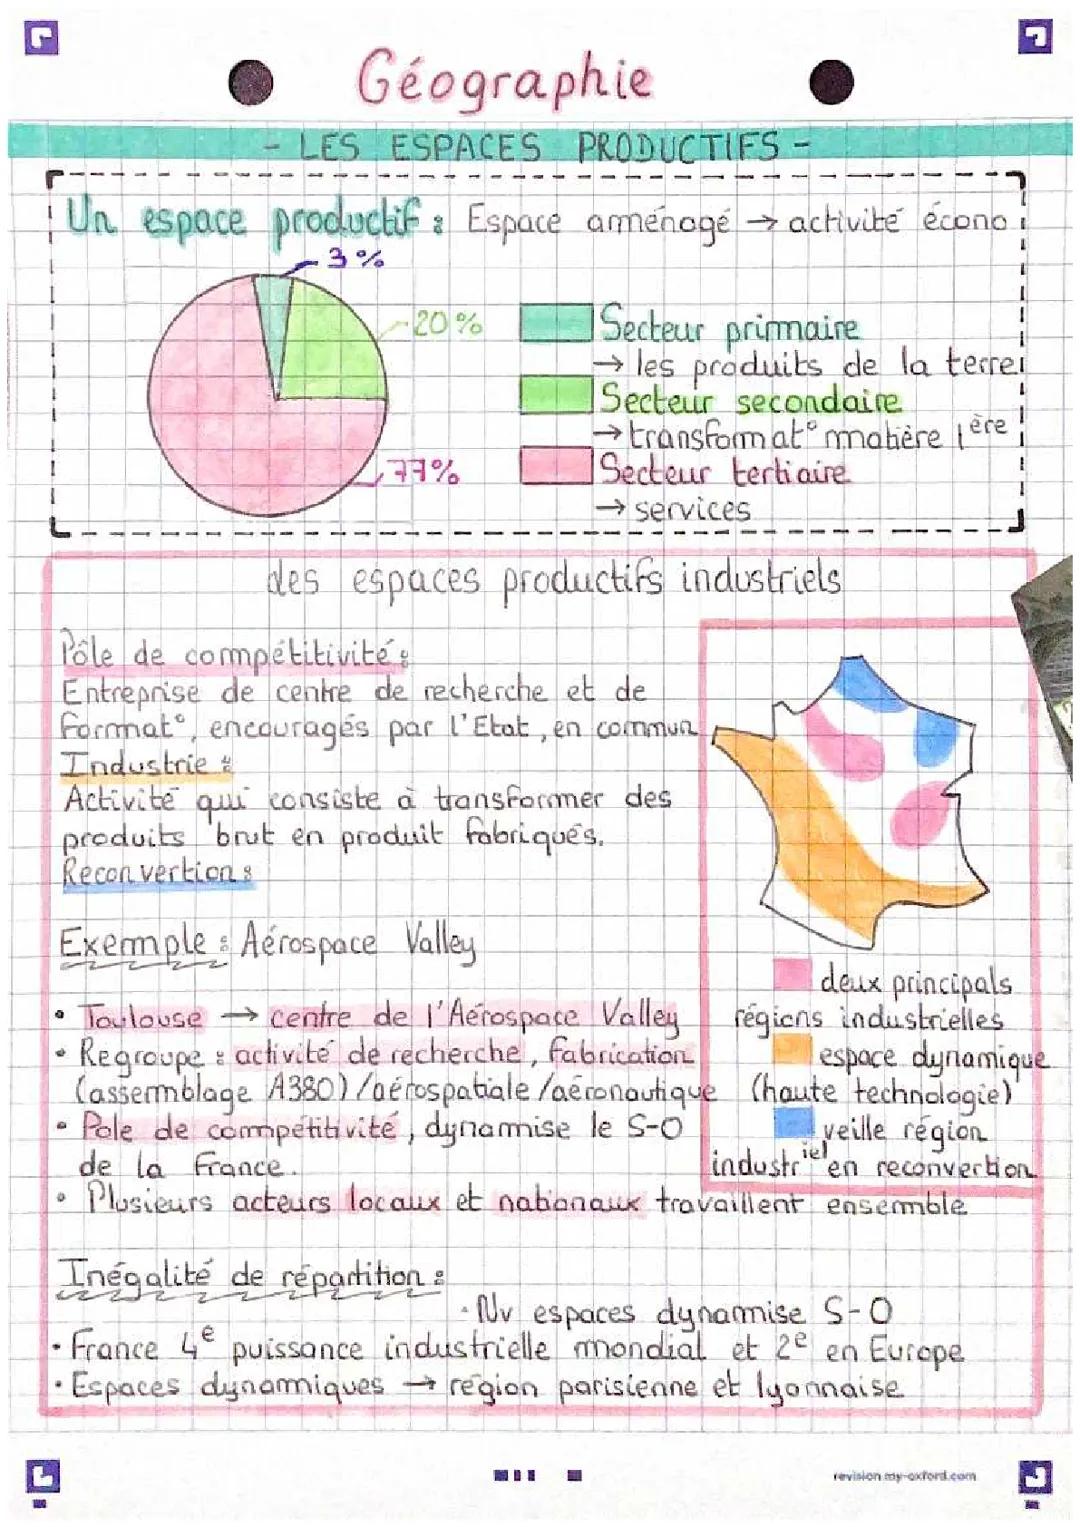 Géographie
- LES ESPACES PRODUCTIFS -
Un espace productif : Espace arménagé → activité écono
3%
20%
77%
Secteur primaire
→ les produits de la terre
Secteur secondaire
→ transformat° matière 1ère
Secteur tertiaire
→ services
des espaces productifs industriels
Pôle de compétitivité :
Entreprise de centre de recherche et de
format°, encouragés par l'Etat, en commun
Industrie :
Activité qui consiste à transformer des
produits brut en produit fabriqués.
Reconvertion :
Exemple : Aérospace Valley
• Toulouse → centre de l'Aérospace Valley
• Regroupe : activité de recherche, fabrication
(assemblage A380) / aérospatiale / aéronautique
• Pole de compétitivité, dynamise le S-O
de la France.
• Plusieurs acteurs locaux et nationaux travaillent ensemble
deux principals
régions industrielles
espace dynamique
(haute technologie)
veille région
industriel en reconvertion
Inégalité de répartition :
• Nv espaces dynamise S-O
• France 4e puissance industrielle mondial et 2e en Europe
• Espaces dynamiques → région parisienne et lyonnaise
revision.my-oxford.com